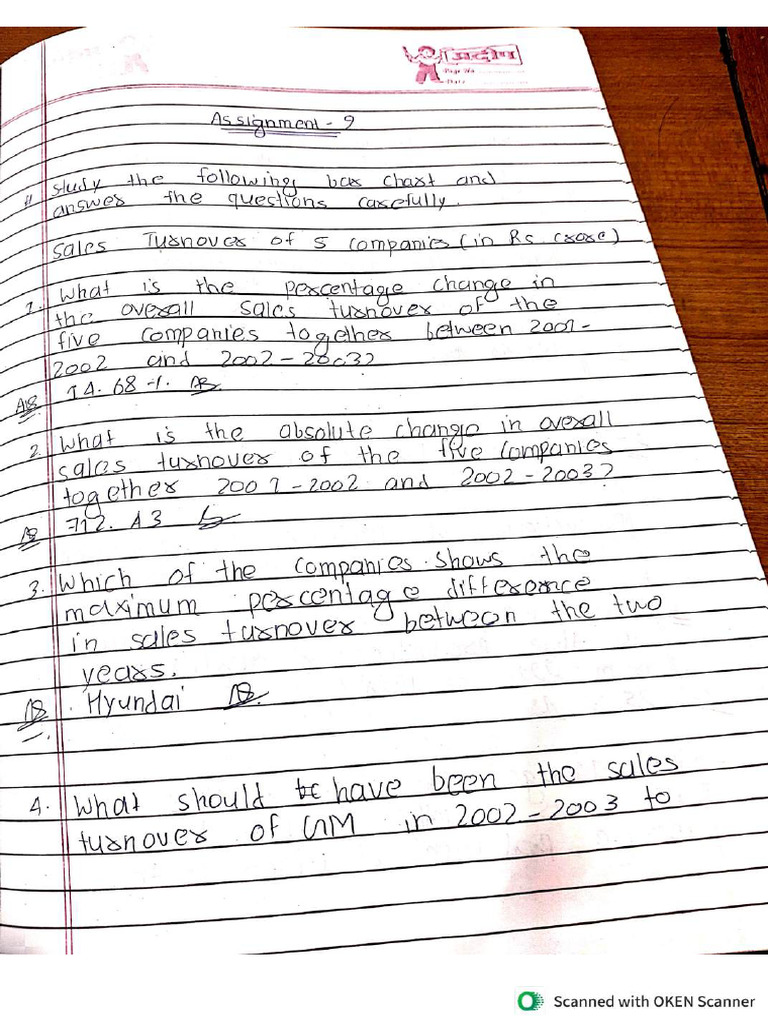 प्रदीप
Page No
Date
Assignment - 9
1) Study the following bar chart and
answer the questions carefully.
Sales Turnover of 5 companies (in Rs. crore)
1. What is the percentage change in
the overall sales turnover of the
five companies together between 2001-
2002 and 2002-2003?
14.68 %.
2. What is the absolute change in overall
sales turnover of the five companies
together 2001-2002 and 2002-2003?
712.43
3. Which of the companies shows the
maximum percentage difference
in sales turnover between the two
years.
Hyundai
4. What should have been the sales
turnover of GM in 2002-2003 to
Scanned with OKEN Scanner